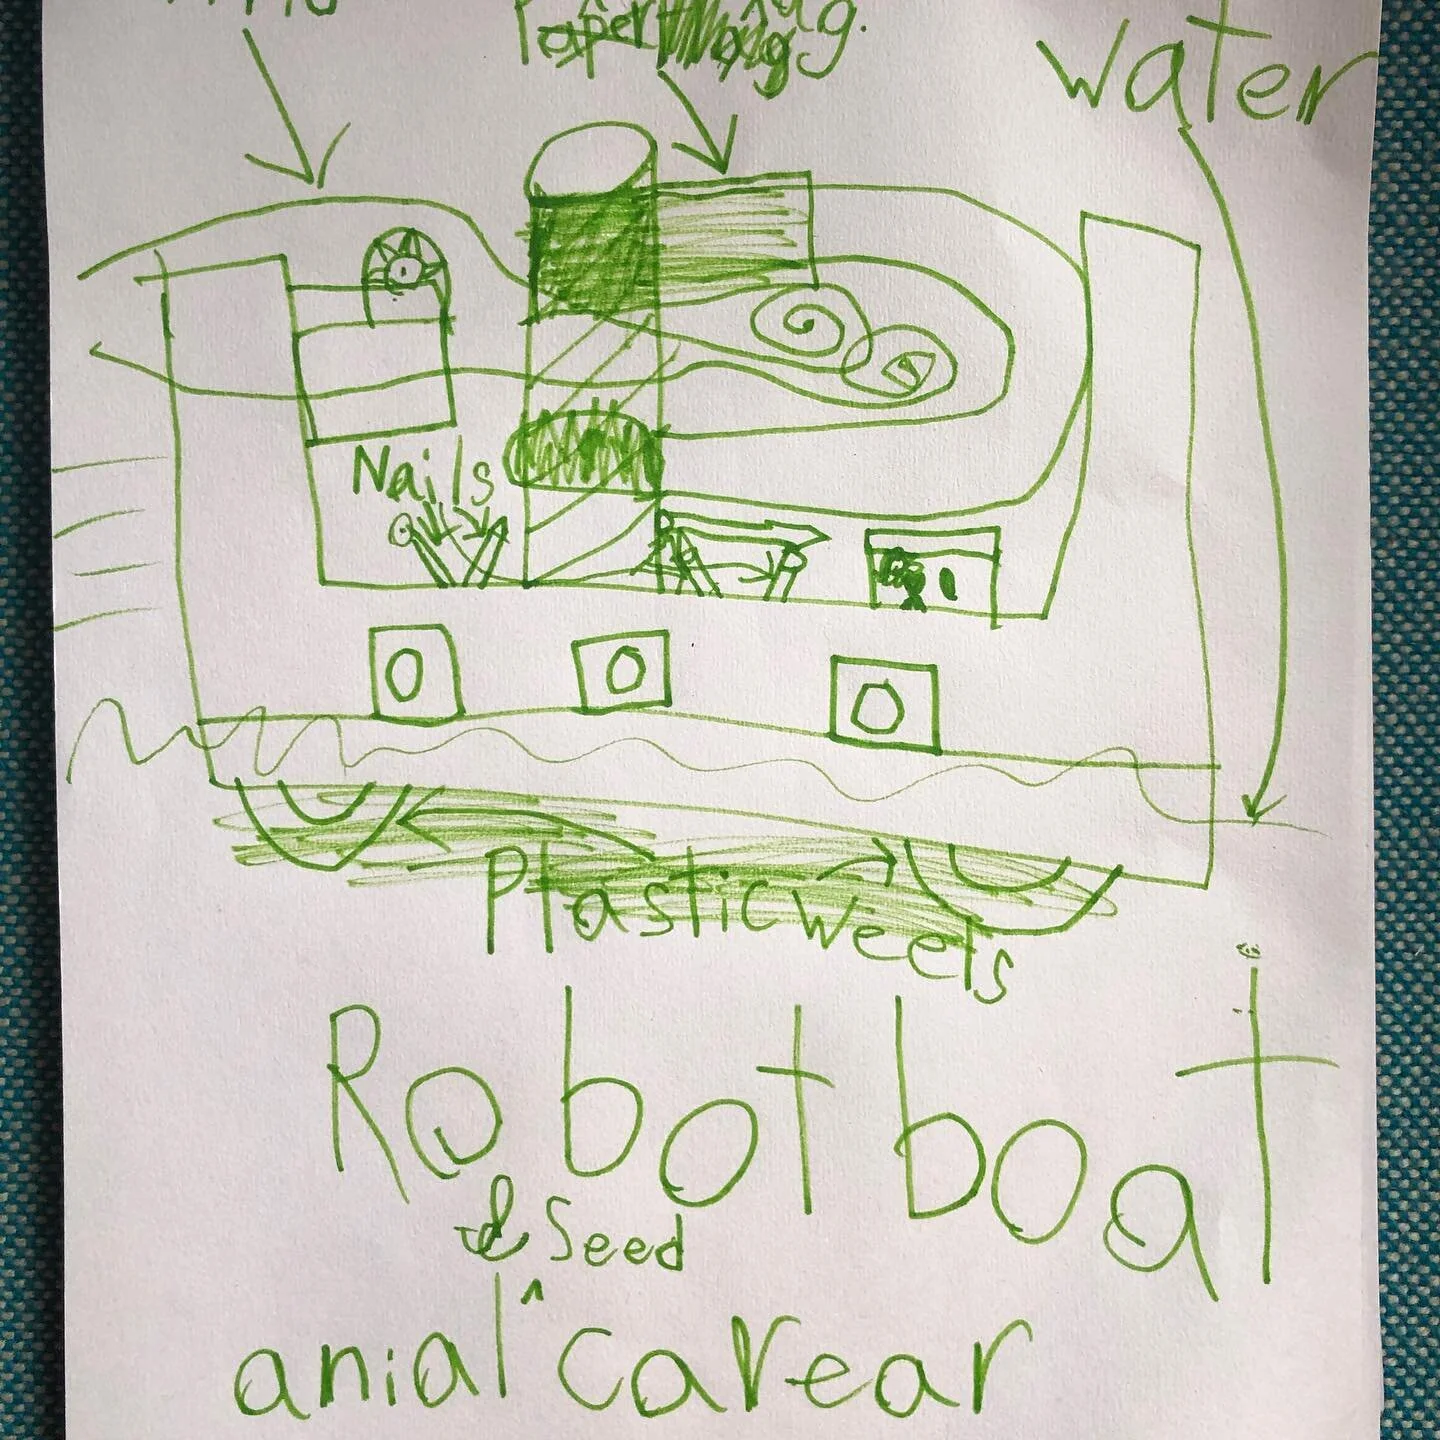 Paper
ug.
water
Nails
Plasticweels
Robotboat
& Seed
anial ^ carear